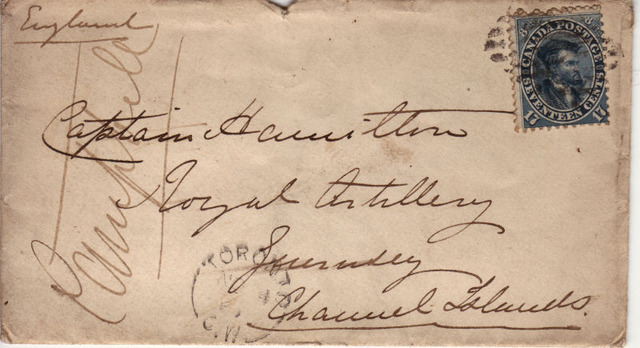 England
CANADA POSTAGE
SEVENTEEN CENTS
17 17
Captain Hamilton
Royal Artillery
Guernsey
Channel Islands.
TORONTO
C.W